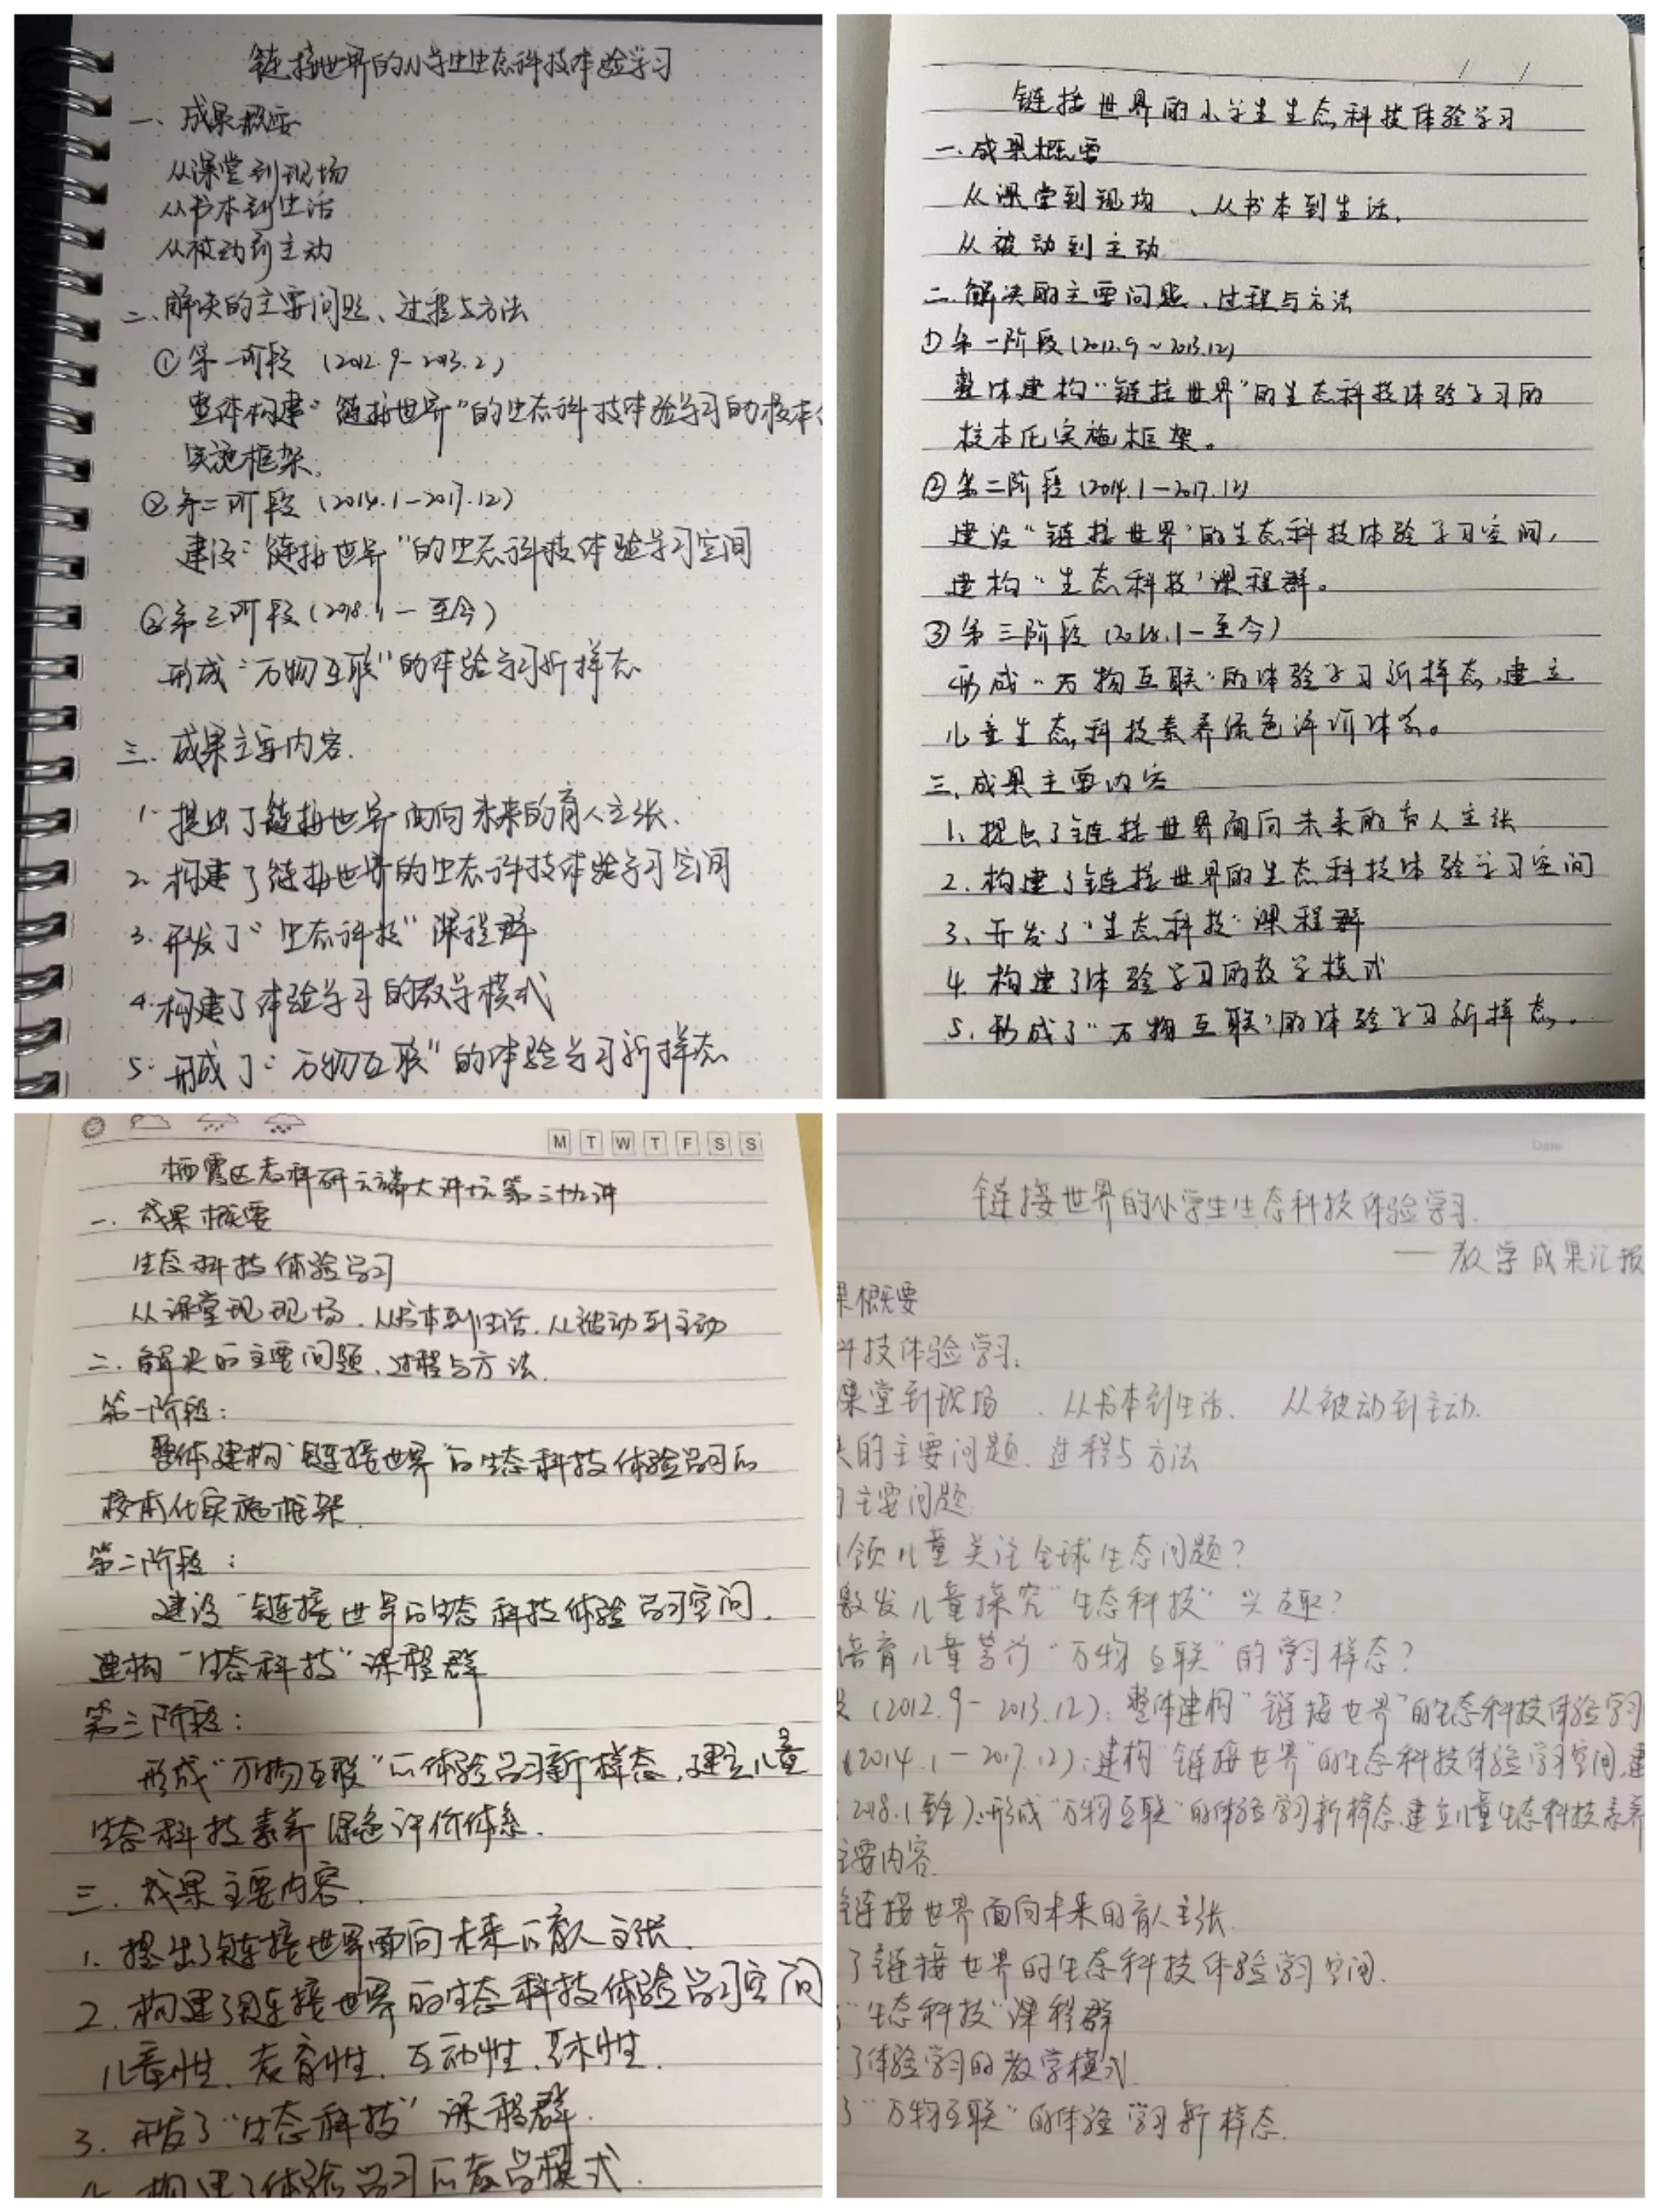 链接世界的小学生生态科技体验学习
一、成果概要
从课堂到现场
从书本到生活
从被动到主动
二、解决的主要问题、过程与方法
①第一阶段（2012.9-2013.2）
整体构建“链接世界”的生态科技体验学习的校本
实施框架。
②第二阶段（2014.1-2017.12）
建设“链接世界”的生态科技体验学习空间
③第三阶段（2018.1-至今）
形成“万物互联”的体验学习新样态
三、成果主要内容.
1. 提出了链接世界面向未来的育人主张.
2. 构建了链接世界的生态科技体验学习空间
3. 开发了“生态科技”课程群
4. 构建了体验学习的教学模式
5. 形成了“万物互联”的体验学习新样态
链接世界的小学生生态科技体验学习
一.成果概要
从课堂到现场、从书本到生活、
从被动到主动
二.解决的主要问题、过程与方法
①第一阶段（2012.9~2013.12）
整体建构“链接世界”的生态科技体验学习的
校本化实施框架。
②第二阶段（2014.1-2017.12）
建设“链接世界”的生态科技体验学习空间，
建构“生态科技”课程群。
③第三阶段（2018.1-至今）
形成“万物互联”的体验学习新样态、建立
儿童生态科技素养绿色评价体系。
三、成果主要内容
1、提出了链接世界面向未来的育人主张
2. 构建了链接世界的生态科技体验学习空间
3、开发了“生态科技”课程群
4. 构建了体验学习的教学模式
5. 形成了“万物互联”的体验学习新样态。
M T W T F S S
栖霞区教科研云端大讲坛第三十九讲
一. 成果概要
生态科技体验学习
从课堂现现场、从书本到生活、从被动到主动
二. 解决的主要问题、过程与方法.
第一阶段：
整体建构“链接世界”的生态科技体验学习的
校本化实施框架.
第二阶段：
建设“链接世界的生态科技体验学习空间.
建构“生态科技”课程群
第三阶段：
形成“万物互联”的体验学习新样态，建立儿童
生态科技素养绿色评价体系.
三. 成果主要内容.
1. 提出了链接世界面向未来的育人主张.
2. 构建了链接世界的生态科技体验学习空间
儿童性、教育性、互动性、艺术性.
3. 开发了“生态科技”课程群.
构建了体验学习的教学模式.
Date
链接世界的小学生生态科技体验学习.
——教学成果汇报
果概要
科技体验学习.
课堂到现场、从书本到生活、从被动到主动.
的主要问题. 过程与方法
主要问题:
领儿童关注全球生态问题？
激发儿童探究“生态科技”兴趣？
培育儿童 “万物互联”的学习样态？
（2012.9-2013.12）：整体建构“链接世界”的生态科技体验学习
（2014.1-2017.12）：建构“链接世界”的生态科技体验学习空间、建
2018.1至今）：形成“万物互联”的体验学习新样态、建立儿童生态科技素养
主要内容.
链接世界面向未来的育人主张.
了链接世界的生态科技体验学习空间.
“生态科技”课程群
了体验学习的教学模式.
了“万物互联”的体验学习新样态.